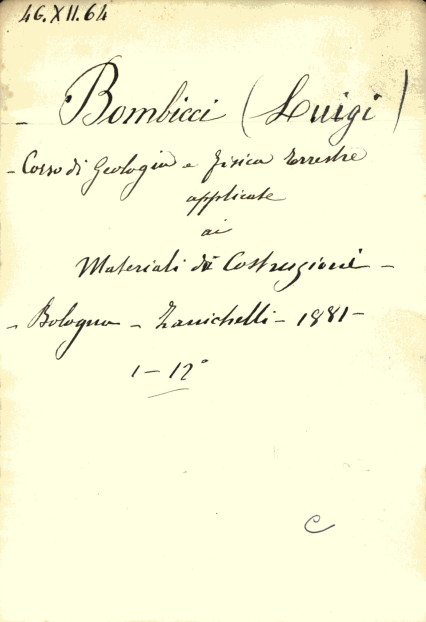 46.XII.64
- Bombicci (Luigi)
- Corso di Geologia e fisica terrestre
applicate
ai
Materiali di Costruzioni -
- Bologna - Zanichelli - 1881 -
1 - 12°
C